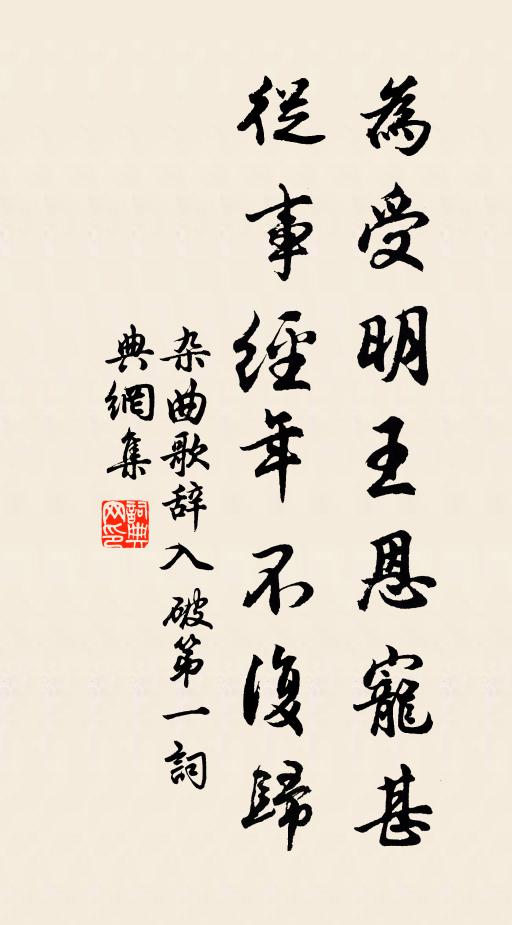 為受明王恩寵甚
從事經年不復歸
杂曲歌辞入破第一詞
典網集
詞典网印